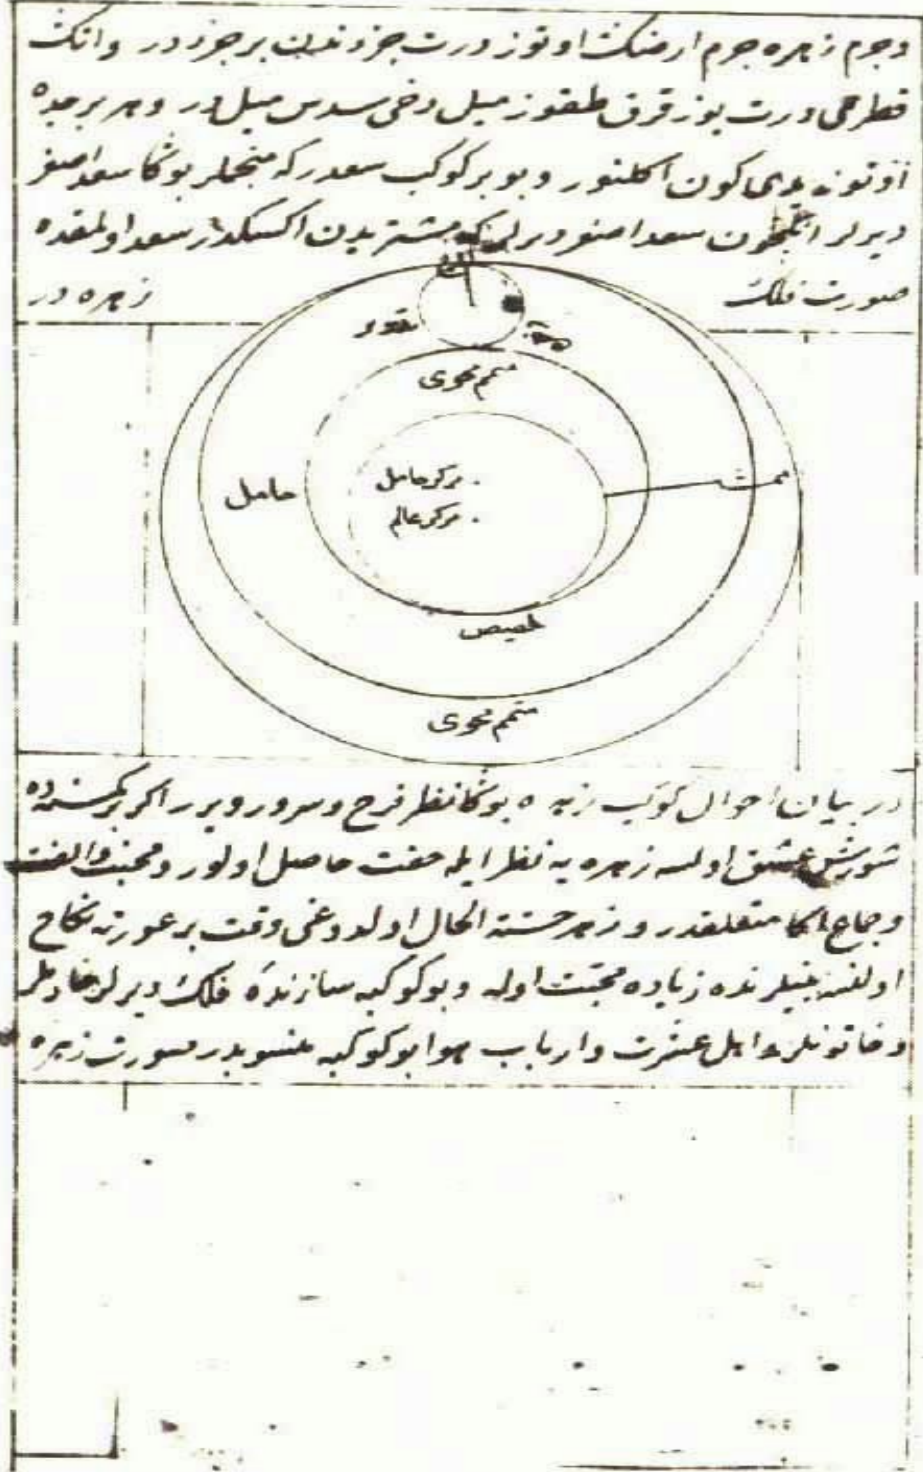 وجرم زهره جرم ارضك اوتوز درت جزوندن بر جزودر وانك
قطرى درت يوز قرق طقوز ميل دخى سدس ميل در وهر برجده
يدى كون اكلنور وبو بر كوكب سعددر كه منجملر بوكا سعد اصغر
ديرلر انكچون سعد اصغر ديرلر كه مشتريدن اكسكدر سعد اولمقده
صورت فلك زهره در
تدوير
زهره
متمم محوى
مركز حامل
حامل
مركز عالم
حضيض
متمم محوى
در بيان احوال كوكب زهره بوكا نظر فرح وسرور ويرر اكر بر كمسنه ده
شورش عشق اولسه زهره يه نظر ايله خفت حاصل اولور ومحبت والفت
وجماع اكا متعلقدر وزهره حسنة الحال اولدوغى وقت بر عورته نكاح
اولنسه بينلرنده زياده محبت اوله وبو كوكبه سازندۀ فلك ديرلر خادملر
وخاتونلر واهل عشرت وارباب هوا بو كوكبه منسوبدر صورت زهره